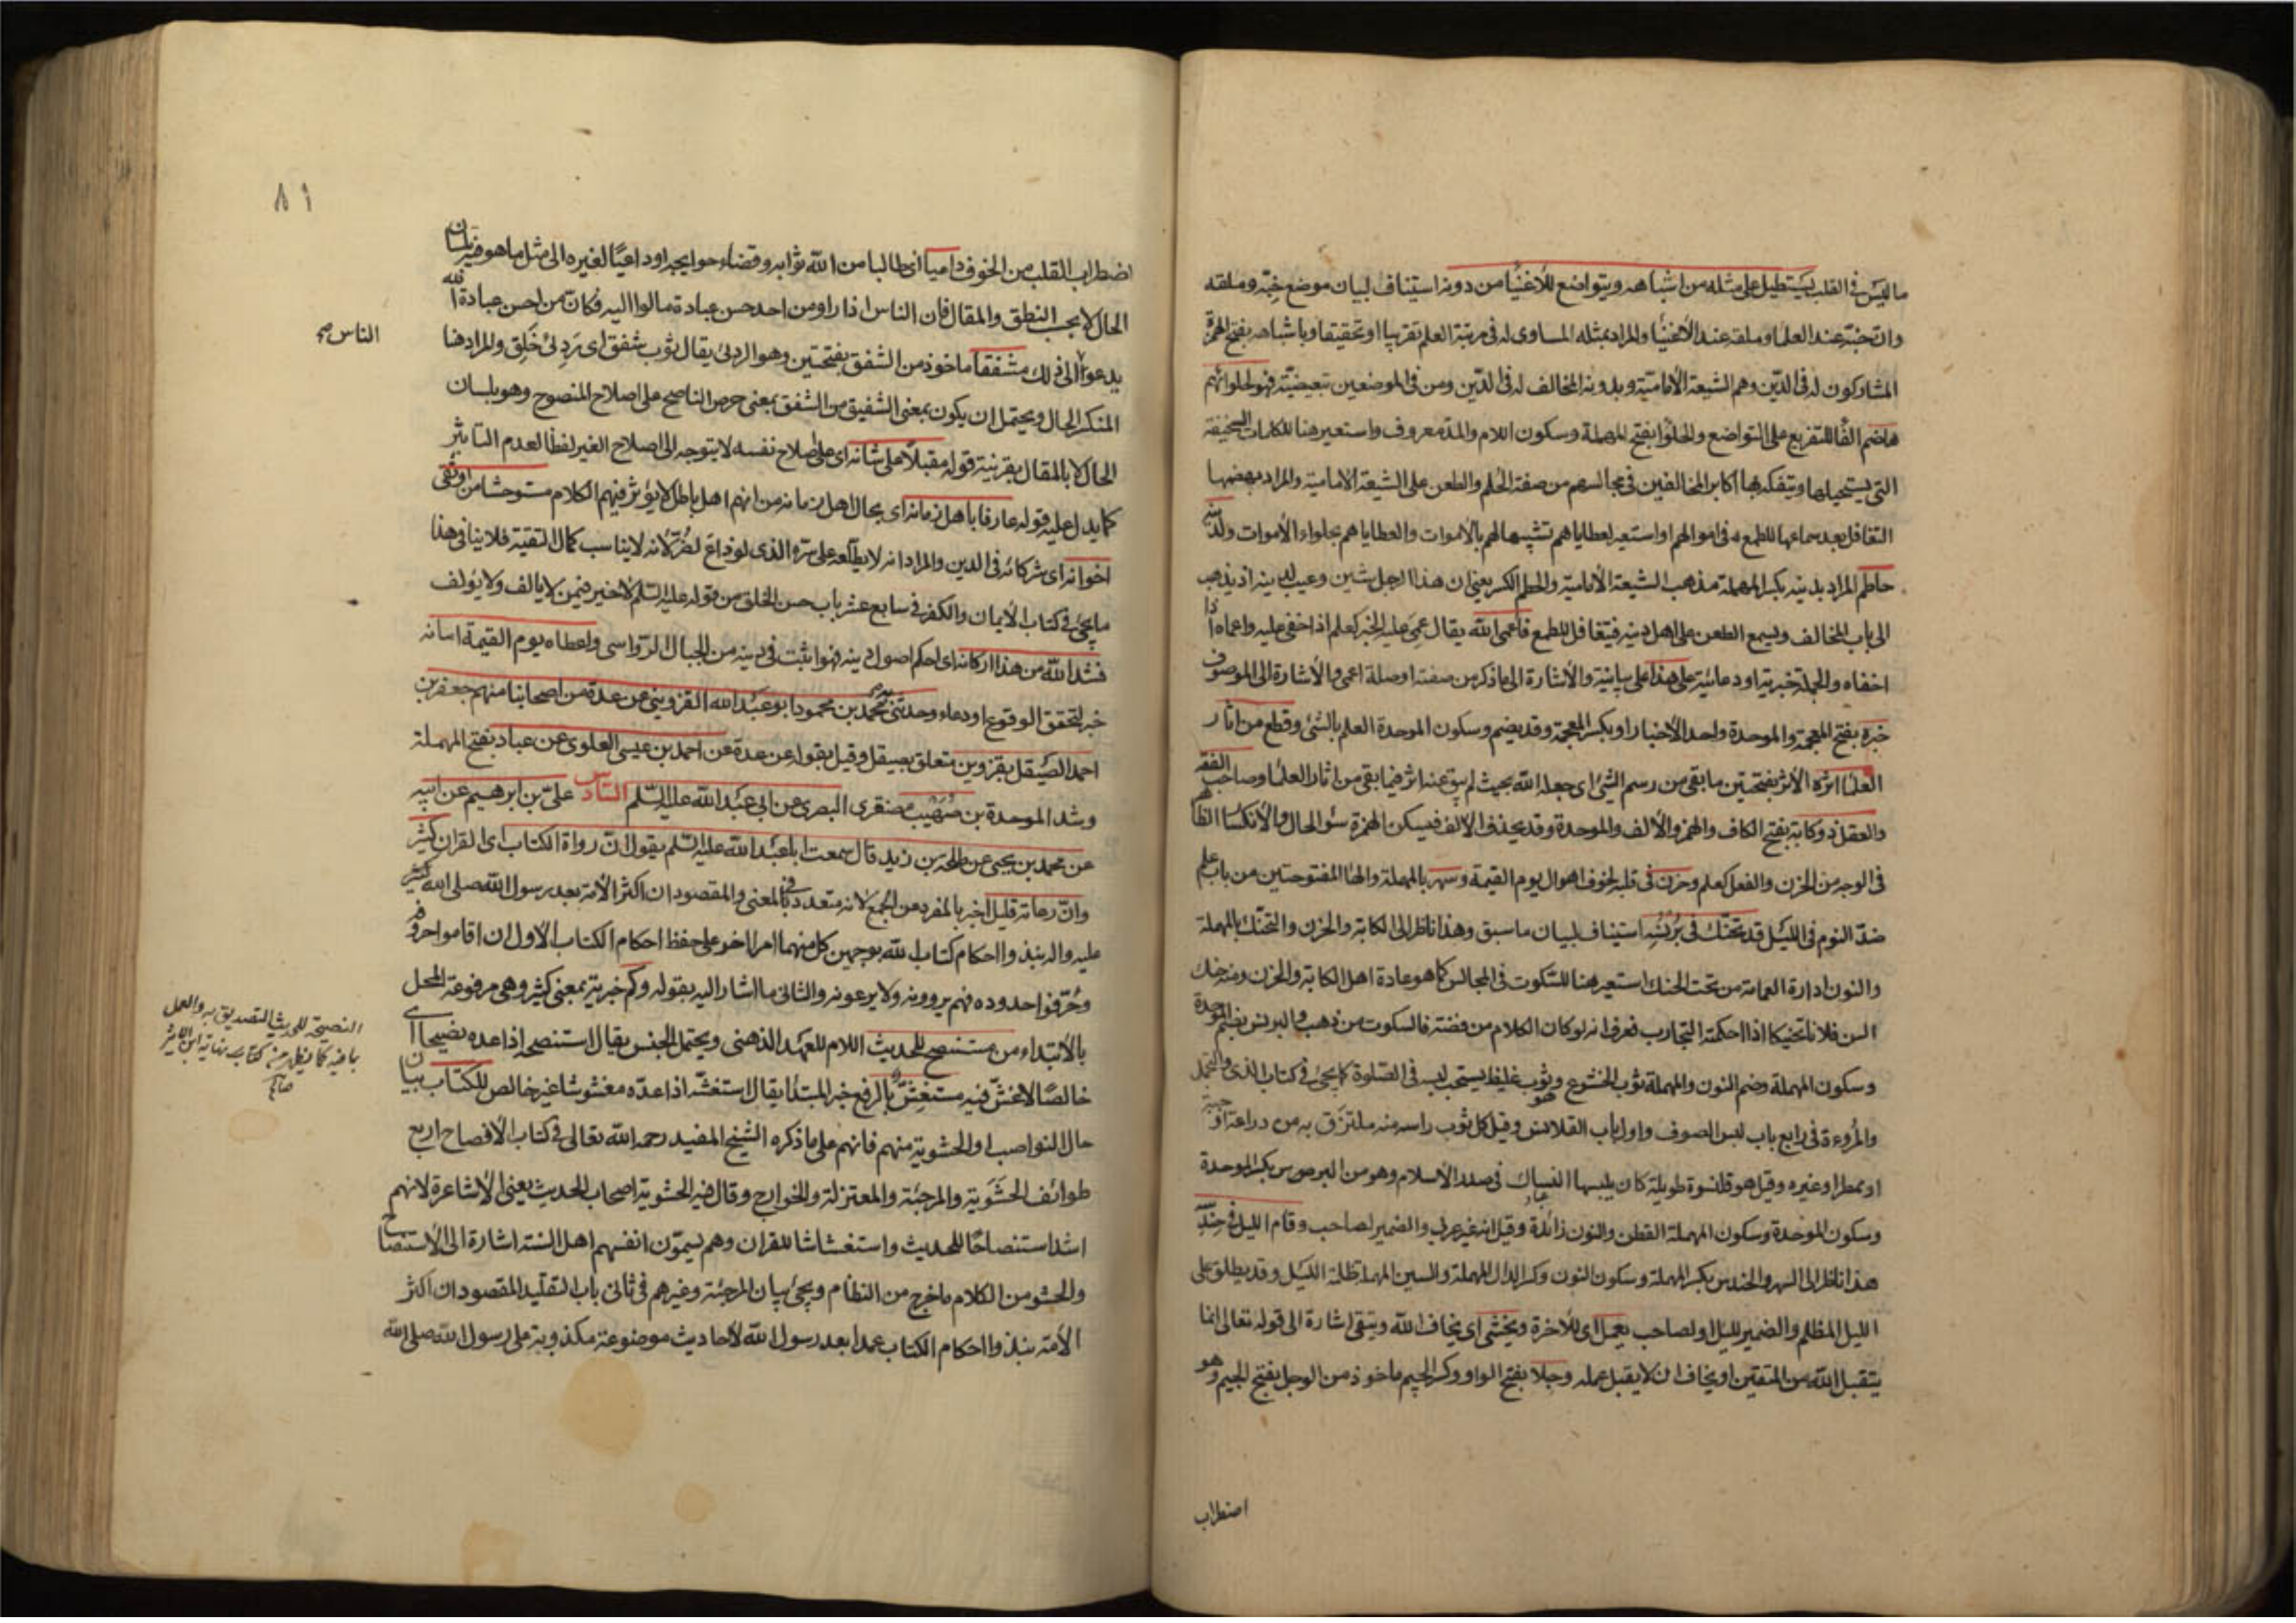 ما ليس في القلب يستطيل على مثله من اشباهه ويتواضع للأغنيا من دونه استيناف لبيان موضع خبّه وملقه
وان خبّه عند العلما وملقه عند الأغنيا والمراد بمثله المساوى له في مرتبة العلم تقريبا او تحقيقا وباشباهه بفتح الهمزة
المشاركون له في الدّين وهم الشيعة الأماميّة وبدونه المخالف له في الدّين ومن في الموضعين تبعيضيّة فهو لحلوائهم
هاضم الفا للتفريع على التواضع والحلوا بفتح المهملة وسكون اللام والمدّ معروف واستعير هنا للكلمات السخيفة
التي يستحيلها ويتفكه بها اكابر المخالفين في مجالسهم من صفة الحلم والطعن على الشيعة الأمامية والمراد بهضمها
التغافل بعد سماعها للطمع في اموالهم او استعير لعطاياهم تشبيها لهم بالأموات والعطاياهم بحلواء الأموات ولدينه
حاطم المراد بدينه بكسر المهملة مذهب الشيعة الأمامية والحطم الكسر يعني ان هذا الرجل شين وعيب لدينه اذ يذهب
الى باب المخالف ويسمع الطعن على اهل دينه فيتغافل للطمع فأعمى الله يقال عمى عليه الخبر كعلم اذا خفى عليه واعماه اذا
اخفاه والجملة خبرية او دعائية على هذا على بيانية والأشارة الى ما ذكر من صفته او صلة اعمى والأشارة الى الموصوف
خبره بفتح المعجمة والموحدة واحد الأخبار او بكسر المعجمة وقد يضم وسكون الموحدة العلم بالشئ وقطع من اثار
العلما اثره الأثر بفتحتين ما بقى من رسم الشئ اى جعله الله بحيث لم يبق عنه اثر فيما بقى من اثار العلما وصاحب الفقه
والعقل ذو كابة بفتح الكاف والهمز والألف والموحدة وقد يحذف الألف فيسكن الهمزة سؤ الحال والأنكسار الظاهر
في الوجه من الحزن والفعل كعلم وحزن في قلبه لخوف اهوال يوم القيمة وسهر بالمهملة والهاء المفتوحتين من باب علم
ضدّ النوم في الليل قد تحنّك في برنسه استيناف لبيان ما سبق وهذا ناظر الى الكابة والحزن والتحنّك بالمهملة
والنون ادارة العمامة من تحت الحنك استعير هنا للسّكوت في المجالس كما هو عادة اهل الكابة والحزن ومنه حنك
السن فلانا تحنيكا اذا احكمته التجارب فعرف انه لو كان الكلام من فضة فالسكوت من ذهب والبرنس بضم الموحدة
وسكون المهملة وضم النون والمهملة ثوب الخشوع وهو ثوب غليظ يستحب لبسه في الصّلوة كما يجئ في كتاب الذى والتجمل
والمروءة في رابع باب لبس الصوف واول باب القلانس وقيل كل ثوب راسه منه ملتزق به من دراعة او جبة
او ممطر او غيره وقيل هو قلنسوة طويلة كان يلبسها النساك في صدر الأسلام وهو من البرس بكسر الموحدة
وسكون الموحدة وسكون المهملة القطن والنون زائدة وقيل انه غير عربي والضمير لصاحب وقام الليل في حندسه
هذا ناظر الى السهر والحندس بكسر المهملة وسكون النون وكسر الدال المهملة والسين المهملة ظلمة الليل وقد يطلق على
الليل المظلم والضمير لليل او لصاحب يعمل اى للأخرة ويخشى اى يخاف الله ويتقى اشارة الى قوله تعالى انما
يتقبل الله من المتقين او يخاف ان لا يقبل عمله وجلا بفتح الواو وكسر الجيم ماخوذ من الوجل بفتح الجيم وهو
اضطراب
٨١
اضطراب القلب من الخوف داعيا اى طالبا من الله ثوابه وقضاء حوايجه او داعيًا لغيره الى مثل ما هو فيه بلسان
الحال لا بحسب النطق والمقال فان الناس اذا راو من احد حسن عبادة مالوا اليه فكان من احسن عبادة الله
يدعو الى ذلك مشفقا ماخوذ من الشفق بفتحتين وهو الردئ يقال ثوب شفق اى رَدِئ خَلِق والمراد هنا
الناس صح
المنكسر الحال ويحتمل ان يكون بمعنى الشفيق من الشفق بمعنى حرص الناصح على اصلاح المنصوح وهو بلسان
الحال لا بالمقال بقرينة قوله مقبلا على شانه اى على اصلاح نفسه لا يتوجه الى اصلاح الغير لفظا لعدم التاثير
كما يدل عليه قوله عارفا باهل زمانه اى بحال اهل زمانه من انهم اهل باطل لا يؤثر فيهم الكلام مستوحشا من اوثق
اخوانه اى شركائه في الدين والمراد انه لا يطّلعه على سرّه الذى لو ذاع لضرّ لانه لا يناسب كمال التقية فلا ينافى هذا
ما يجئ في كتاب الأيمان والكفر في سابع عشر باب حسن الخلق من قوله عليه السّلم لا خير فيمن لا يالف ولا يؤلف
فشد الله من هذا اركانه اى احكم اصول دينه فهو اثبت في دينه من الجبال الرّواسى واعطاه يوم القيمة امانه
خبر لتحقق الوقوع او دعاء وحدثنى به محمد بن محمود ابو عبد الله القزويني عن عدة من اصحابنا منهم جعفر بن
احمد الصيقل بقزوين متعلق بصيقل وقيل بقوله عن عدة عن احمد بن عيسى العلوى عن عباد بفتح المهملة
وشد الموحدة بن صهيب مصغرى البصرى عن ابي عبد الله عليه السّلم السّادس على بن ابرهيم عن ابيه
عن محمد بن يحيى عن طلحة بن زيد قال سمعت ابا عبد الله عليه السّلم يقول ان رواة الكتاب اى القران كثير
وانّ رعاته قليل اخبر بالمفرد عن الجمع لانه متعدد في المعنى والمقصود ان اكثر الأمة بعد رسول الله صلى الله
عليه واله نبذوا احكام كتاب الله بوجهين كل منهما امر اخر على حفظ احكام الكتاب الأول ان اقاموا حروفه
وحُرّفوا حدوده فهم يروونه ولا يرعونه والثانى ما اشار اليه بقوله وكم خبرية بمعنى كثير وهى مرفوعة المحل
بالأبتداء من مستنصح للحديث اللام للعهد الذهنى ويحتمل الجنس يقال استنصحه اذا عده نصيحا اى
النصيحة للحديث التصديق به والعمل
بما فيه كما يظهر من كتاب نهاية ابن الاثير
خالصًا لا غشّ فيه مستغِشّ بالرفع خبر المبتدا يقال استغشّه اذا عدّه مغشوشا غير خالص للكتاب بيان
حال النواصب او الحشوية منهم فانهم على ما ذكره الشيخ المفيد رحمه الله تعالى في كتاب الأفصاح اربع
طوائف الحشَوية والمرجئة والمعتزلة والخوارج وقال فيه الحشوية اصحاب الحديث يعنى الأشاعرة لانهم
اشد استنصاحًا للحديث واستغشاشا للقران وهم يسمّون انفسهم اهل السّنة اشارة الى الأستنصاح
والحشو من الكلام ما خرج من النظام ويجئ بيان المرجئة وغيرهم في ثانى باب التقليد المقصود ان اكثر
الأمّة نبذوا احكام الكتاب عمدا بعد رسول الله لأحاديث موضوعة مكذوبة على رسول الله صلى الله